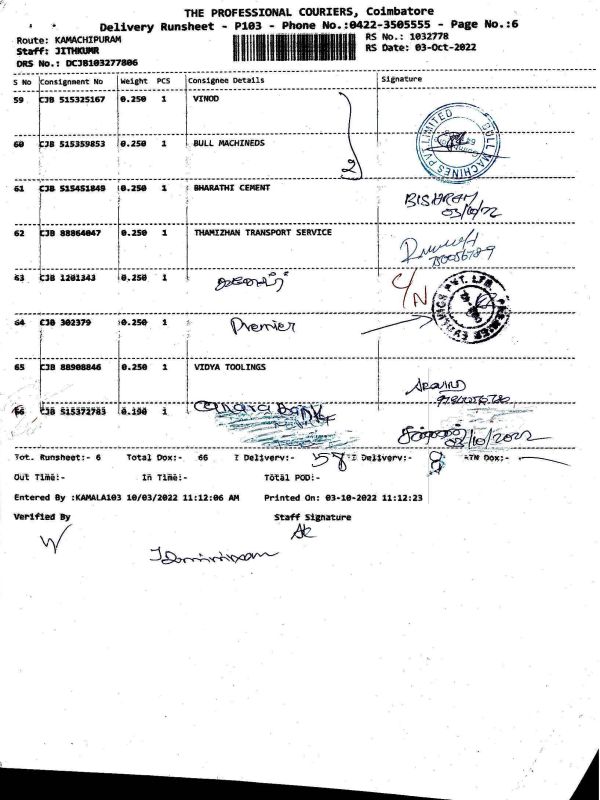 THE PROFESSIONAL COURIERS, Coimbatore
Delivery Runsheet - P103 - Phone No.:0422-3505555 - Page No.:6
Route: KAMACHIPURAM
RS No.: 1032778
Staff: JITHKUMR
RS Date: 03-Oct-2022
DRS No.: DCJB103277806
S No Consignment No Weight PCS Consignee Details Signature
59 CJB 515325167 0.250 1 VINOD
60 CJB 515359853 0.250 1 BULL MACHINEDS
2
BULL MACHINES PVT LIMITED
61 CJB 515451849 0.250 1 BHARATHI CEMENT
BISHRAM
03/10/22
62 CJB 88864047 0.250 1 THAMIZHAN TRANSPORT SERVICE
63 CJB 1201343 0.250 1
C/N
64 CJB 302379 0.250 1 Premier
65 CJB 88908846 0.250 1 VIDYA TOOLINGS
66 CJB 515372783 0.190 1 Canara Bank
03/10/2022
Tot. Runsheet:- 6 Total Dox:- 66 I Delivery:- 58 I Delivery:- 08 RTN Dox:-
Out Time:- In Time:- Total POD:-
Entered By :KAMALA103 10/03/2022 11:12:06 AM Printed On: 03-10-2022 11:12:23
Verified By Staff Signature